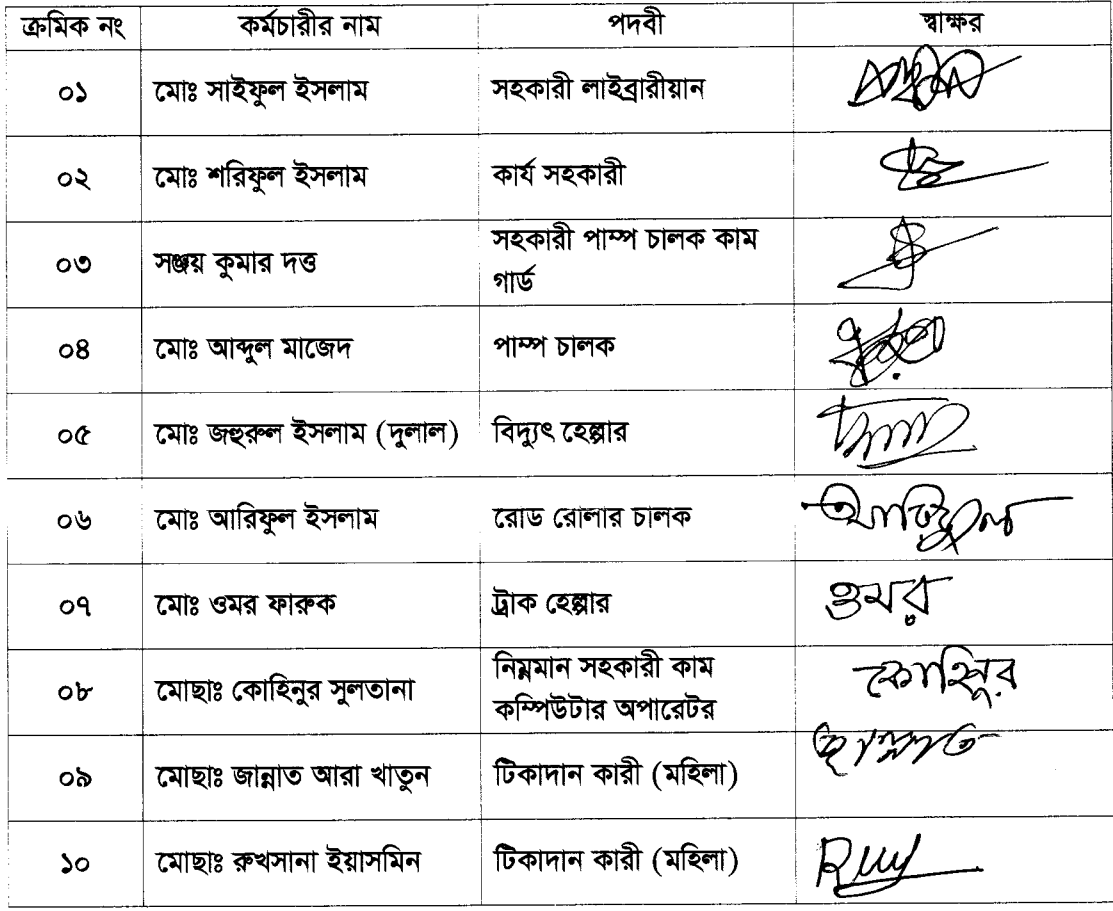 ক্রমিক নং কর্মচারীর নাম পদবী স্বাক্ষর
০১ মোঃ সাইফুল ইসলাম সহকারী লাইব্রারীয়ান
০২ মোঃ শরিফুল ইসলাম কার্য সহকারী
০৩ সঞ্জয় কুমার দত্ত সহকারী পাম্প চালক কাম
গার্ড
০৪ মোঃ আব্দুল মাজেদ পাম্প চালক
০৫ মোঃ জহুরুল ইসলাম (দুলাল) বিদ্যুৎ হেল্পার
০৬ মোঃ আরিফুল ইসলাম রোড রোলার চালক আরিফুল
০৭ মোঃ ওমর ফারুক ট্রাক হেল্পার ওমর
০৮ মোছাঃ কোহিনুর সুলতানা নিম্নমান সহকারী কাম
কম্পিউটার অপারেটর কোহিনুর
০৯ মোছাঃ জান্নাত আরা খাতুন টিকাদান কারী (মহিলা) জান্নাত
১০ মোছাঃ রুখসানা ইয়াসমিন টিকাদান কারী (মহিলা)